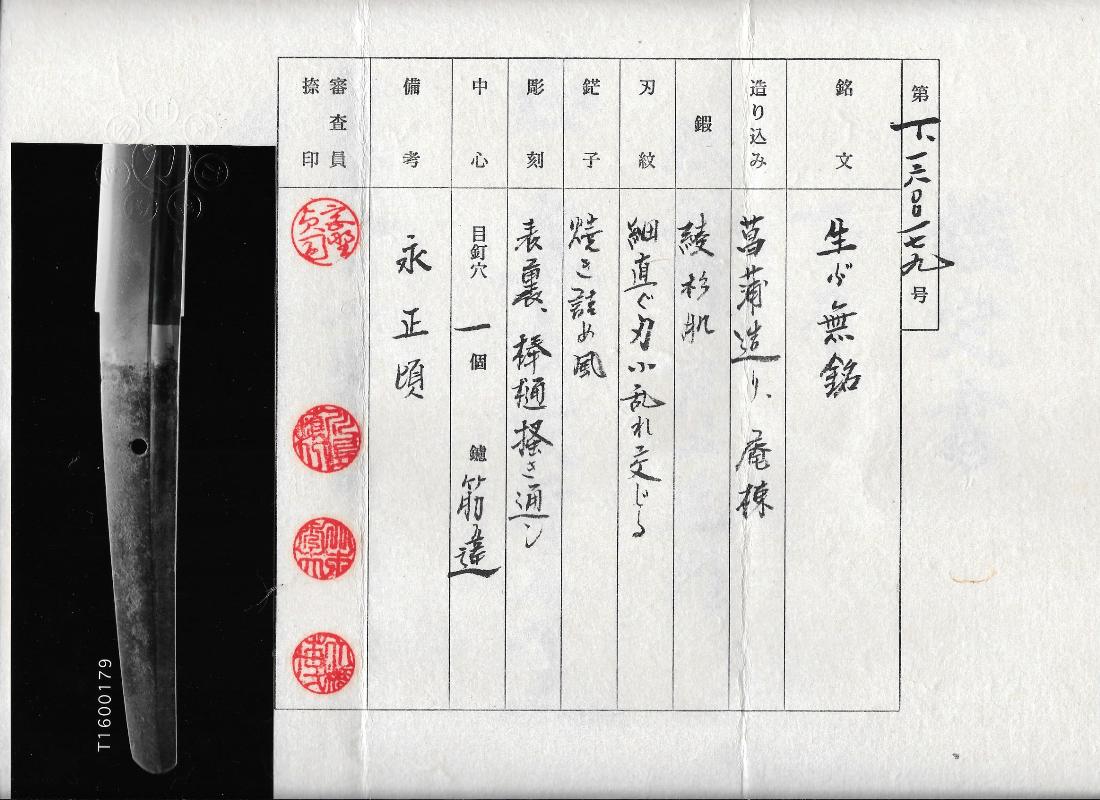 第T、一六〇〇一七九号
銘文
生ぶ無銘
造り込み
菖蒲造り、庵棟
鍜
綾杉肌
刃紋
細直ぐ刃小乱れ交じる
鋩子
焼き詰め風
彫刻
表裏、棒樋掻き通し
中心
目釘穴 一 個 鑢 筋違
備考
永正頃
審査員
捺印
T1600179